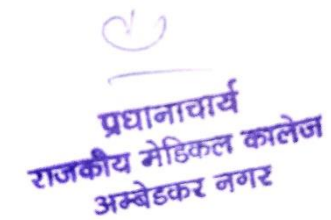 प्रधानाचार्य
राजकीय मेडिकल कालेज
अम्बेडकर नगर